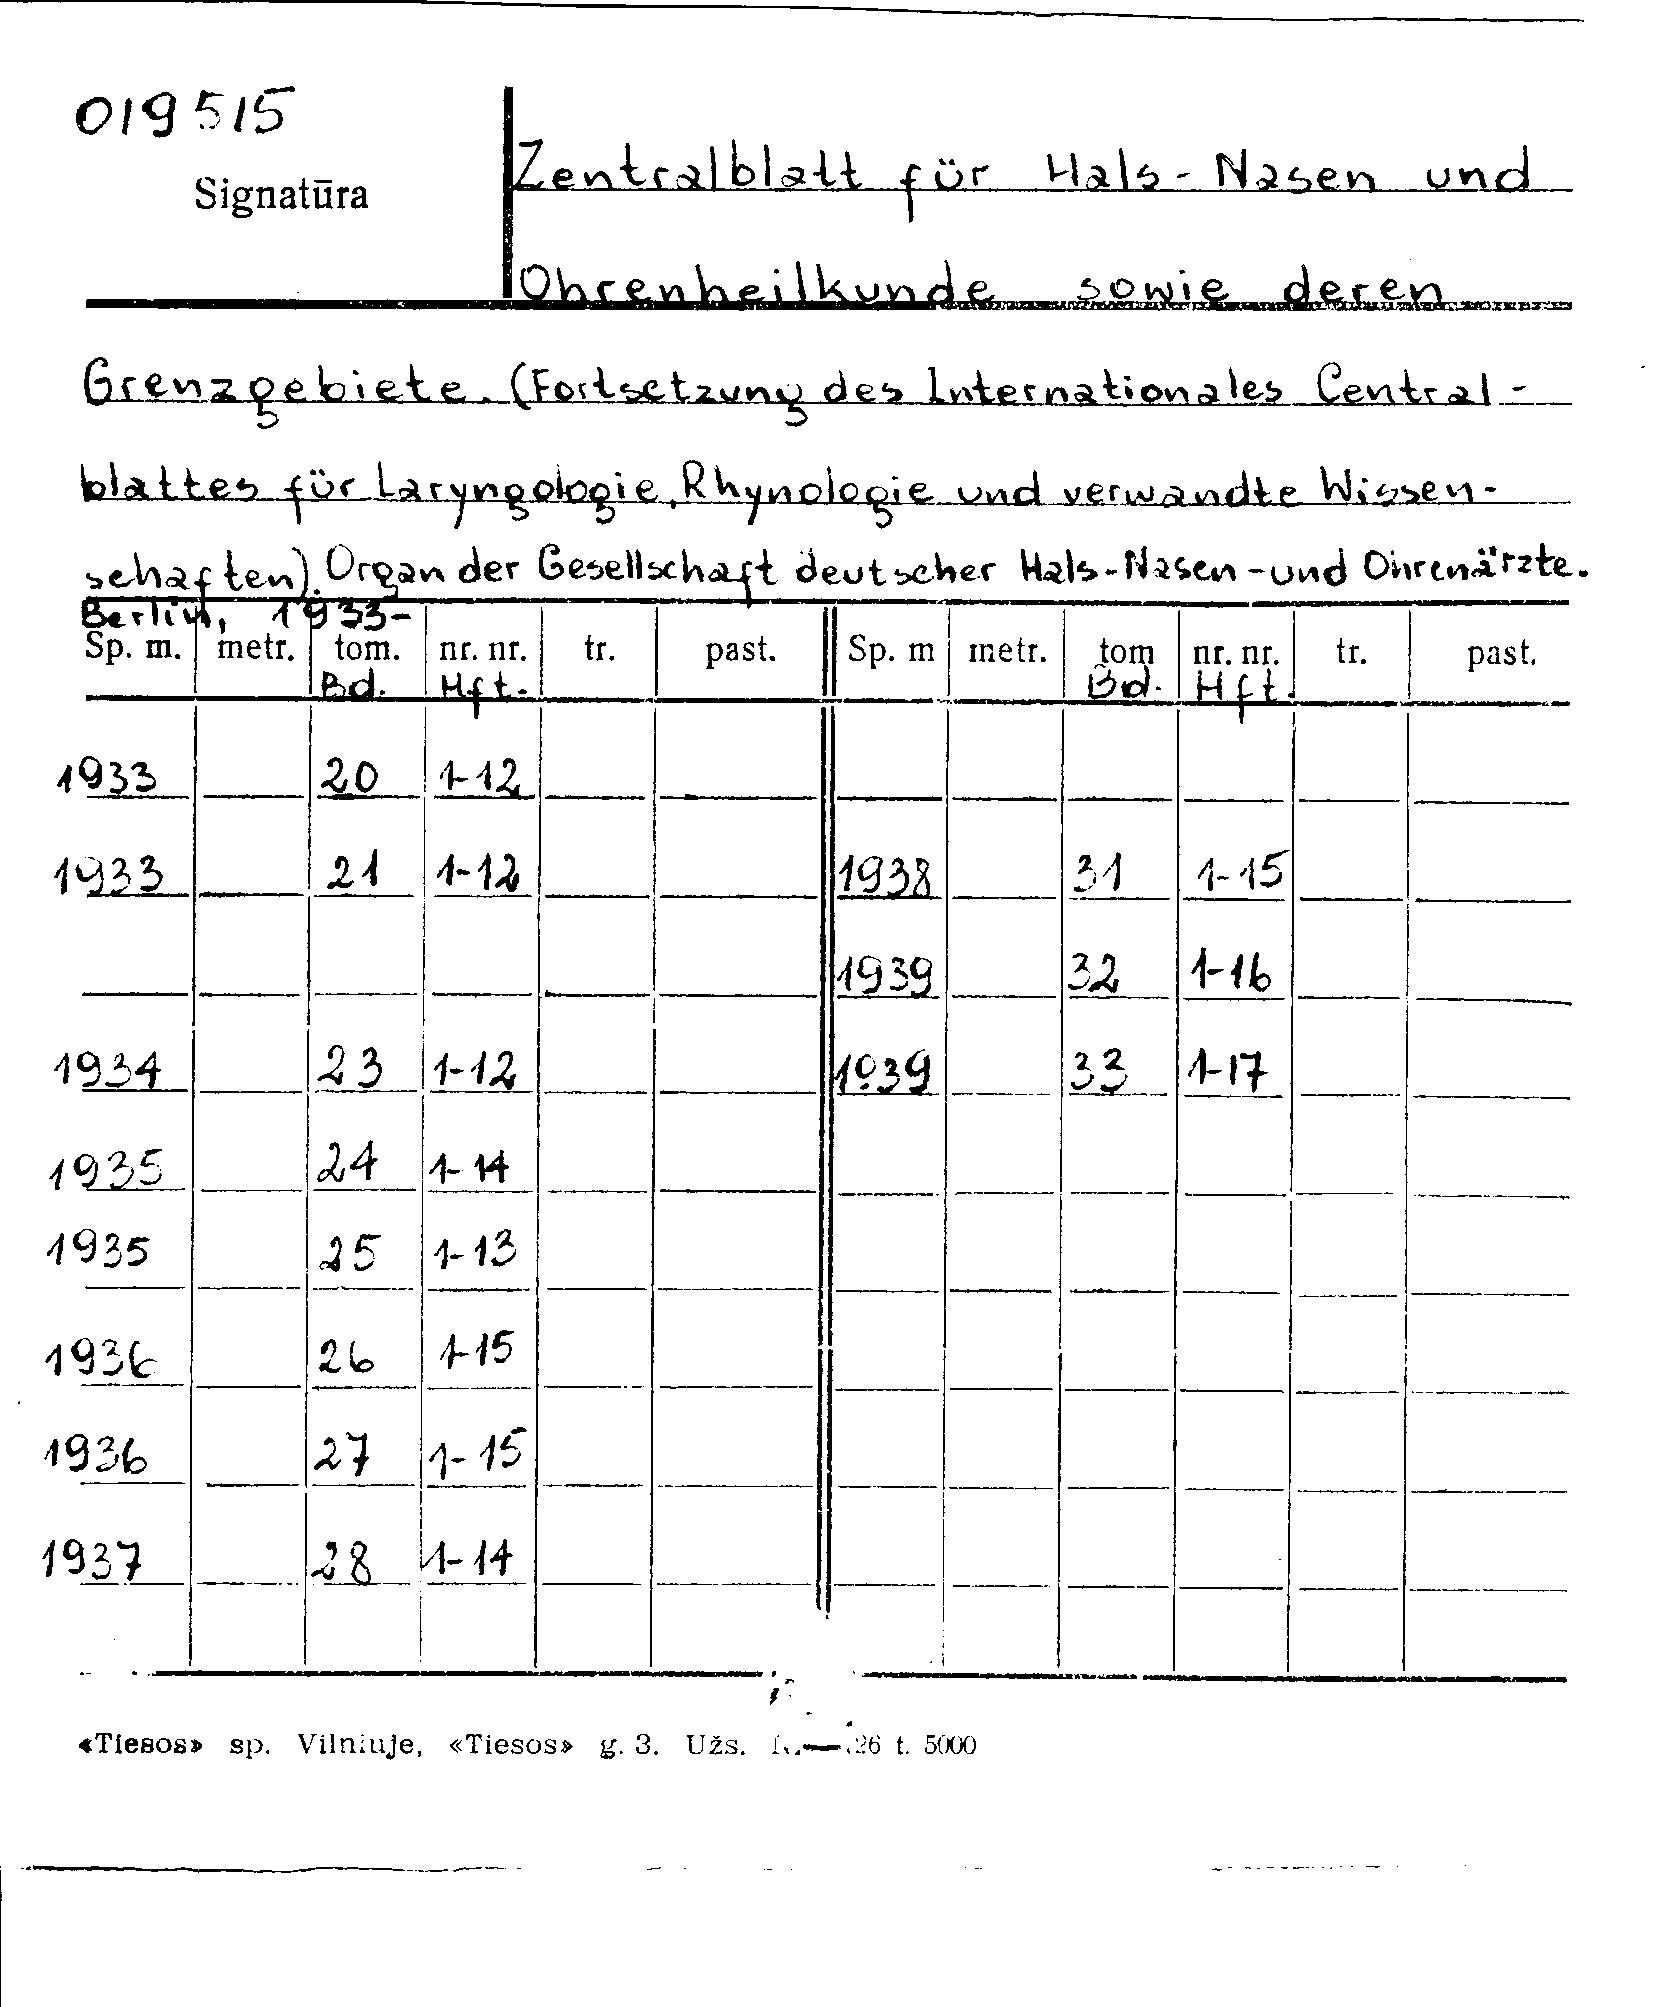 019515
Signatūra
Zentralblatt für Hals-Nasen und
Ohrenheilkunde sowie deren
Grenzgebiete. (Fortsetzung des Internationales Central-
blattes für Laryngologie, Rhynologie und verwandte Wissen-
schaften). Organ der Gesellschaft deutscher Hals-Nasen-und Ohrenärzte.
Berlin, 1933-
Sp. m. metr. tom. nr. nr. tr. past. Sp. m metr. tom nr. nr. tr. past.
Bd. Hft. Bd. Hft.
1933 20 1-12
1933 21 1-12 1938 31 1-15
1939 32 1-16
1934 23 1-12 1939 33 1-17
1935 24 1-14
1935 25 1-13
1936 26 1-15
1936 27 1-15
1937 28 1-14
«Tiesos» sp. Vilniuje, «Tiesos» g. 3. Užs. 26 t. 5000